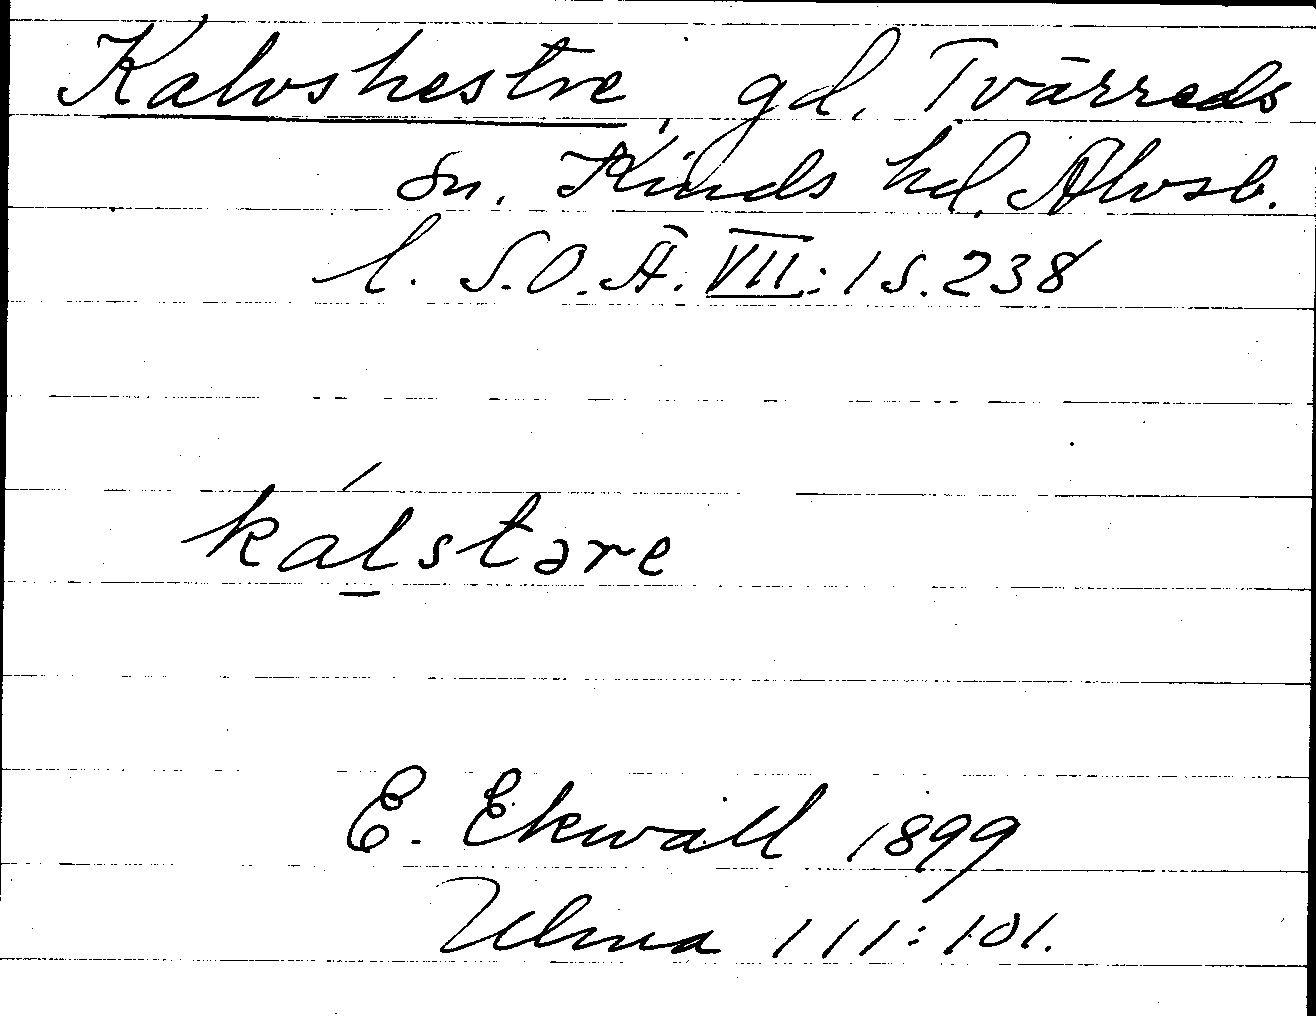 Kalvshestre, gd, Tvärreds
sn. Kinds hd. Älvsb.
l. S.O.Ä. VII: 1 s. 238
kálstəre
E. Ekwall 1899
Ulma 111:101.